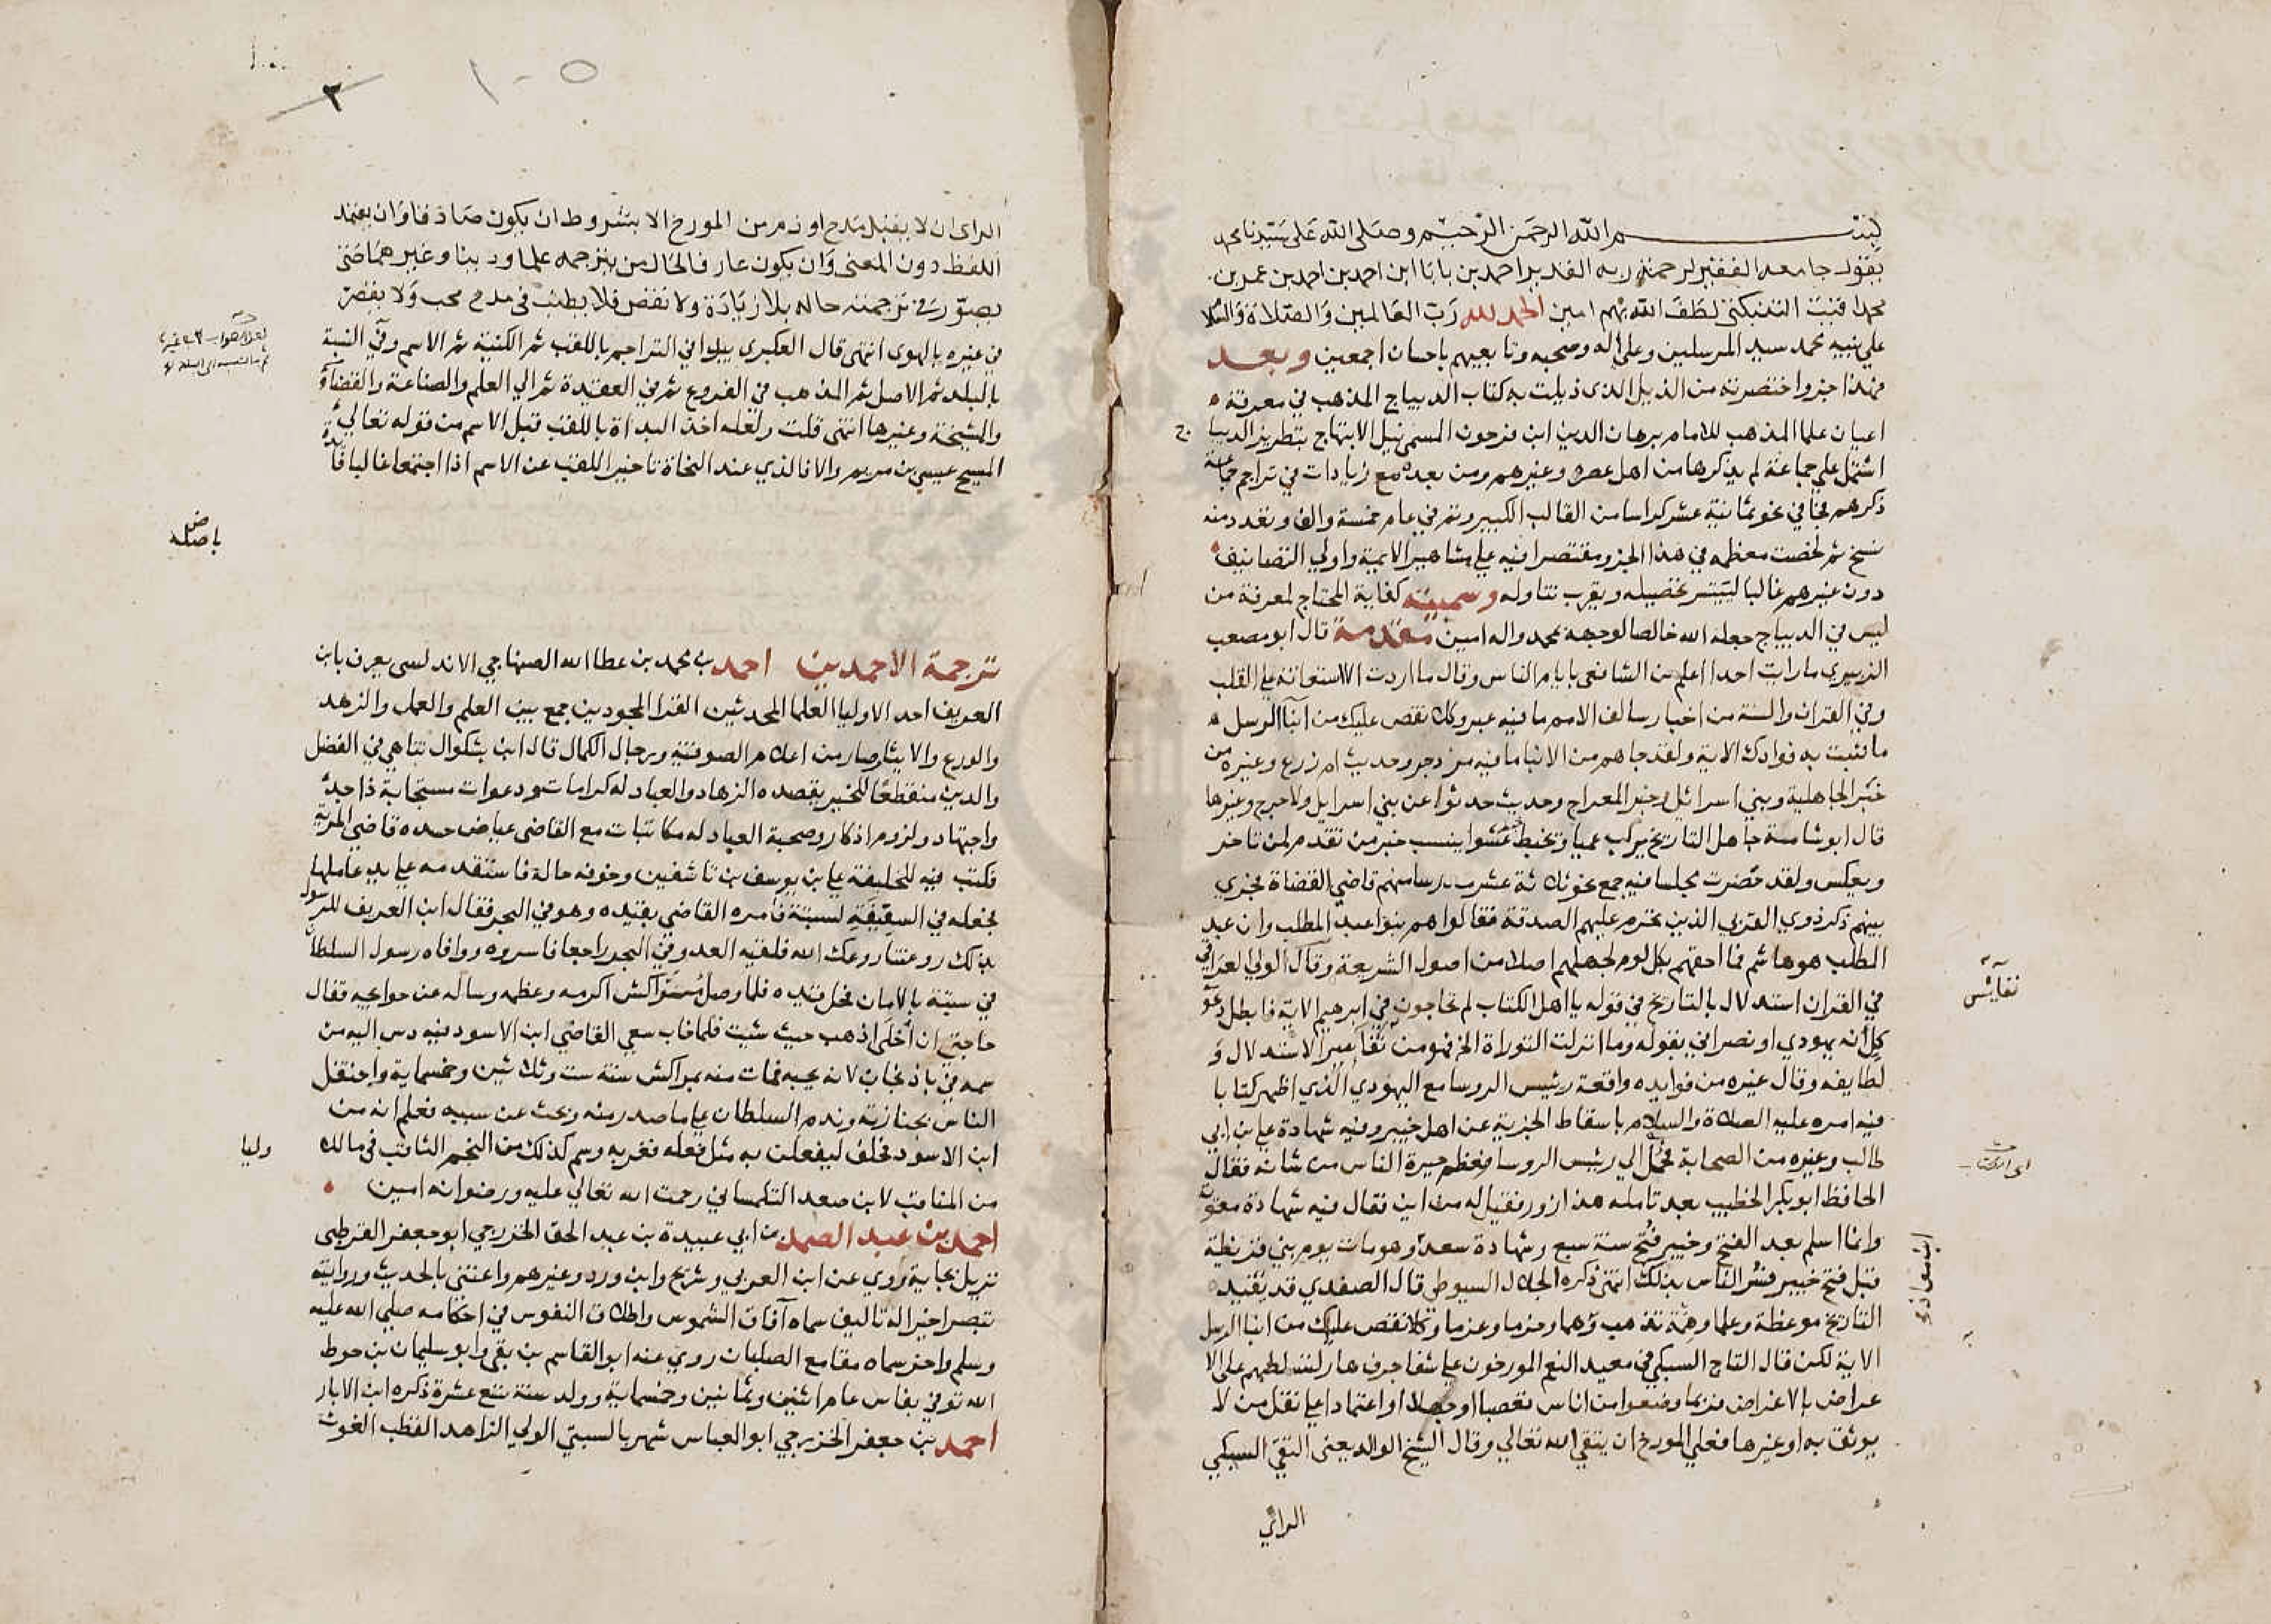 بســـم الله الرحمن الرحيم وصلى الله على سيدنا محمد
يقول جامعه الفقير لرحمة ربه القدير احمد بن بابا ابن احمد بن احمد بن عمر بن
محمد اقيت التنبكتي لطف الله بهم امين الحمد لله رب العالمين والصلاة والسلا
علي نبيه محمد سيد المرسلين وعلى اله وصحبه وتابعيهم باحسان اجمعين وبعد
فهذا جزو اختصرته من الذيل الذي ذيلت به كتاب الديباج المذهب في معرفة
اعيان علما المذهب للامام برهان الدين ابن فرحون المسمى نيل الابتهاج بتطريز الديبا ج
اشتمل علي جماعة لم يذكرها من اهل عصره وغيرهم ومن بعده مع زيادات في تراجم جماعة
ذكرهم فجا في نحو ثمانية عشر كراسا من القالب الكبير وتم في عام خمسة والف وتعدد منه
نسخ ثم لخصت معظمه في هذا الجزو مقتصرا فيه علي مشاهير الايمة واولي التصانيف
دون غيرهم غالبا ليتيسر تحصيله ويقرب تناوله وسميته كفاية المحتاج لمعرفة من
ليس في الديباج جعله الله خالصا لوجهه بمحمد واله امين مقدمة قال ابو مصعب
الزبيري ما رايت احدا اعلم من الشافعي بايام الناس وقال ما اردت الا ستعانة علي القلب
وفي القران والسنة من اخبار سالف الامم ما فيه عبر وكلا نقص عليك من انبا الرسل
ما نثبت به فوادك الاية ولقد جاهم من الانبا ما فيه مزدجر وحديث ام زرع وغيره من
خبر الجاهلية وبني اسرائل وخبر المعراج وحديث حدثوا عن بني اسرايل ولا حرج وغيرها
قال ابو شامة جاهل التاريخ يركب عميا ويخبط خبط عشوا ينسب خبر من تقدم لمن تاخر
ويعكس ولقد حضرت مجلسا فيه جمع نحو ثلاثة عشر مدرسا منهم قاضي القضاة فجري
بينهم ذكر ذوي القربي الذين تحرم عليهم الصدقة فقالوا هم بنوا عبد المطلب وان عبد
المطلب هو هاشم فما احقهم بكل لوم لجهلهم اصلا من اصول الشريعة وقال الولي العراقي
في القران استدلال بالتاريخ في قوله يا اهل الكتاب لم تحاجون في ابرهيم الاية فابطل دعو
كل أنه يهودي او نصراني بقوله وما انزلت التوراة الخ فهو من نفايس الاستدلال و
لطايفه وقال غيره من فوايده واقعة رئيس الروسا مع اليهودي الذي اظهر كتابا
فيه امره عليه الصلاة والسلام باسقاط الجزية عن اهل خيبر وفيه شهادة علي بن ابي
طالب وغيره من الصحابة فحمل الي رئيس الروسا فعظم حيرة الناس من شانه فقال
الحافظ ابو بكر الخطيب بعد تامله هذا زور فقيل له من اين فقال فيه شهادة معوية
وانما اسلم بعد الفتح وخيبر فتح سنة سبع وشهادة سعد وهو مات يوم بني قريظة
قبل فتح خيبر فسر الناس بذلك انتهى ذكره الجلال السيوطي قال الصفدي قد يفيد
التاريخ موعظة وعلما وهمة تذهب وهما وحزما وعزما وكلا نقص عليك من انبا الرسل
الاية لكن قال التاج السبكي في معيد النعم المورخون علي شفا جرف هار لتسلطهم على الا
عراض بالاغراض فربما وضعوا من اناس تعصبا او جهلا او اعتمادا علي نقل من لا
يوثق به او غيرها فعلي المورخ ان يتقي الله تعالي وقال الشيخ الوالد يعني التقي السبكي
الراي
نفايس
الراي ان لا يقبل مدح او ذم من المورخ الا بشروط ان يكون صادقا وان يعتمد
اللفظ دون المعنى وان يكون عارفا لحال من يترجمه علما ودينا وغيرهما حتى
يصور في ترجمته حاله بلا زيادة ولا نقص فلا يطنب في مدح محب ولا يقصر
في غيره بالهوى انتهى قال العكبري يبدا في التراجم باللقب ثم الكنية ثم الاسم وفي النسبة
بالبلد ثم الاصل ثم المذهب في الفروع ثم في العقدة ثم الي العلم والصناعة والقضا و
والمشيخة وغيرها انتهى قلت ولعله اخذ البداة باللقب قبل الاسم من قوله تعالي
المسيح عيسي بن مريم والا فالذي عند النحاة تاخير اللقب عن الاسم اذا اجتمعا غالبا فائدة
باصله
ترجمة الاحمدين احمد بن محمد بن عطا الله الصنهاجي الاندلسى يعرف بابن
العريف احد الاوليا العلما المحدثين القرا المجودين جمع بين العلم والعمل والزهد
والورع والايثار صار من اعلام الصوفية ورجال الكمال قال ابن بشكوال تناهي في الفضل
والدين منقطعا للخير يقصده الزهاد والعباد له كرامات ودعوات مستجابة ذا جد
واجتهاد ولزوم اذكار وصحبة العباد له مكاتبات مع القاضي عياض حسده قاضي المرية
فكتب فيه للخليفة علي بن يوسف بن تاشفين وخوفه حاله فاستقدمه علي يد عاملها
فجعله في السفينة لسبتة فامره القاضي بقيده وهو في البحر فقال ابن العريف للرسول
بذلك روعتنا روعك الله فلقيه العدو في البحر راجعا فاسروه ووافاه رسول السلطان
في سبتة بالامان فحل قيده فلما وصل مراكش اكرمه وعظمه وساله عن حوايجه فقال
حاجتي ان اخلى اذهب حيث شيت فلما غاب سعي القاضي ابن الاسود فيه دس اليه من
سمه في باذنجان لانه يحبه فمات منه بمراكش سنة ست وثلاثين وخمسماية واحتفل
الناس بجنازته وندم السلطان علي ما صدر منه وبحث عن سببه فعلم انه من
ابن الاسود فحلف ليفعلن به مثل فعله فغربه وسم كذلك من النجم الثاقب في ما لله
من المناقب لابن صعد التلمساني رحمت الله تعالي عليه ورضوانه امين
احمد بن عبد الصمد بن ابي عبيدة بن عبد الحق الخزرجي ابو جعفر القرطبي
نزيل بجاية روي عن ابن العربي وشريح وابن ورد وغيرهم واعتنى بالحديث وروايته
تبصرا خيرا له تاليف سماه آفاق الشموس واطلاق النفوس في احكامه صلي الله عليه
وسلم واخر سماه مقامع الصلبان روي عنه ابو القاسم بن بقي وابو سليمان بن حوط
الله توفي بفاس عام اثنين وثمانين وخمسماية وولد سنة تسع عشرة ذكره ابن الابار
احمد بن جعفر الخزرجي ابو العباس شهر بالسبتي الولي الزاهد القطب الغوث